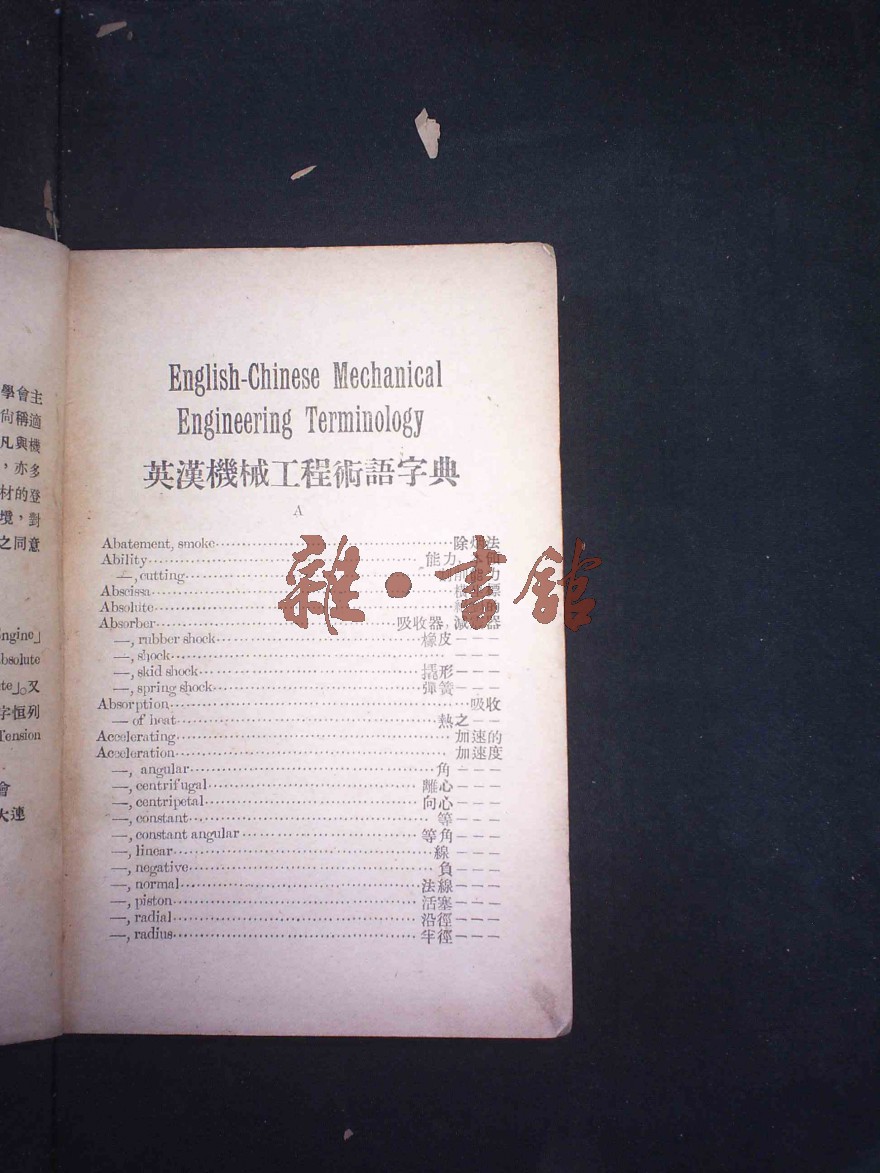 學會主
尙稱適
凡與機
，亦多
材的登
境，對
之同意
ngine」
bsolute
te」。又
字恒列
Tension
會
大連
English-Chinese Mechanical
Engineering Terminology
英漢機械工程術語字典
A
Abatement, smoke 除煙法
Ability 能力
—, cutting
Abscissa
Absolute
Absorber 吸收器，減震器
—, rubber shock 橡皮– – –
—, shock – – –
—, skid shock 橇形– – –
—, spring shock 彈簧– – –
Absorption 吸收
— of heat 熱之– –
Accelerating 加速的
Acceleration 加速度
—, angular 角– – –
—, centrifugal 離心– – –
—, centripetal 向心– – –
—, constant 等– – –
—, constant angular 等角– – –
—, linear 線– – –
—, negative 負– – –
—, normal 法線– – –
—, piston 活塞– – –
—, radial 沿徑– – –
—, radius 半徑– – –
雜·書館